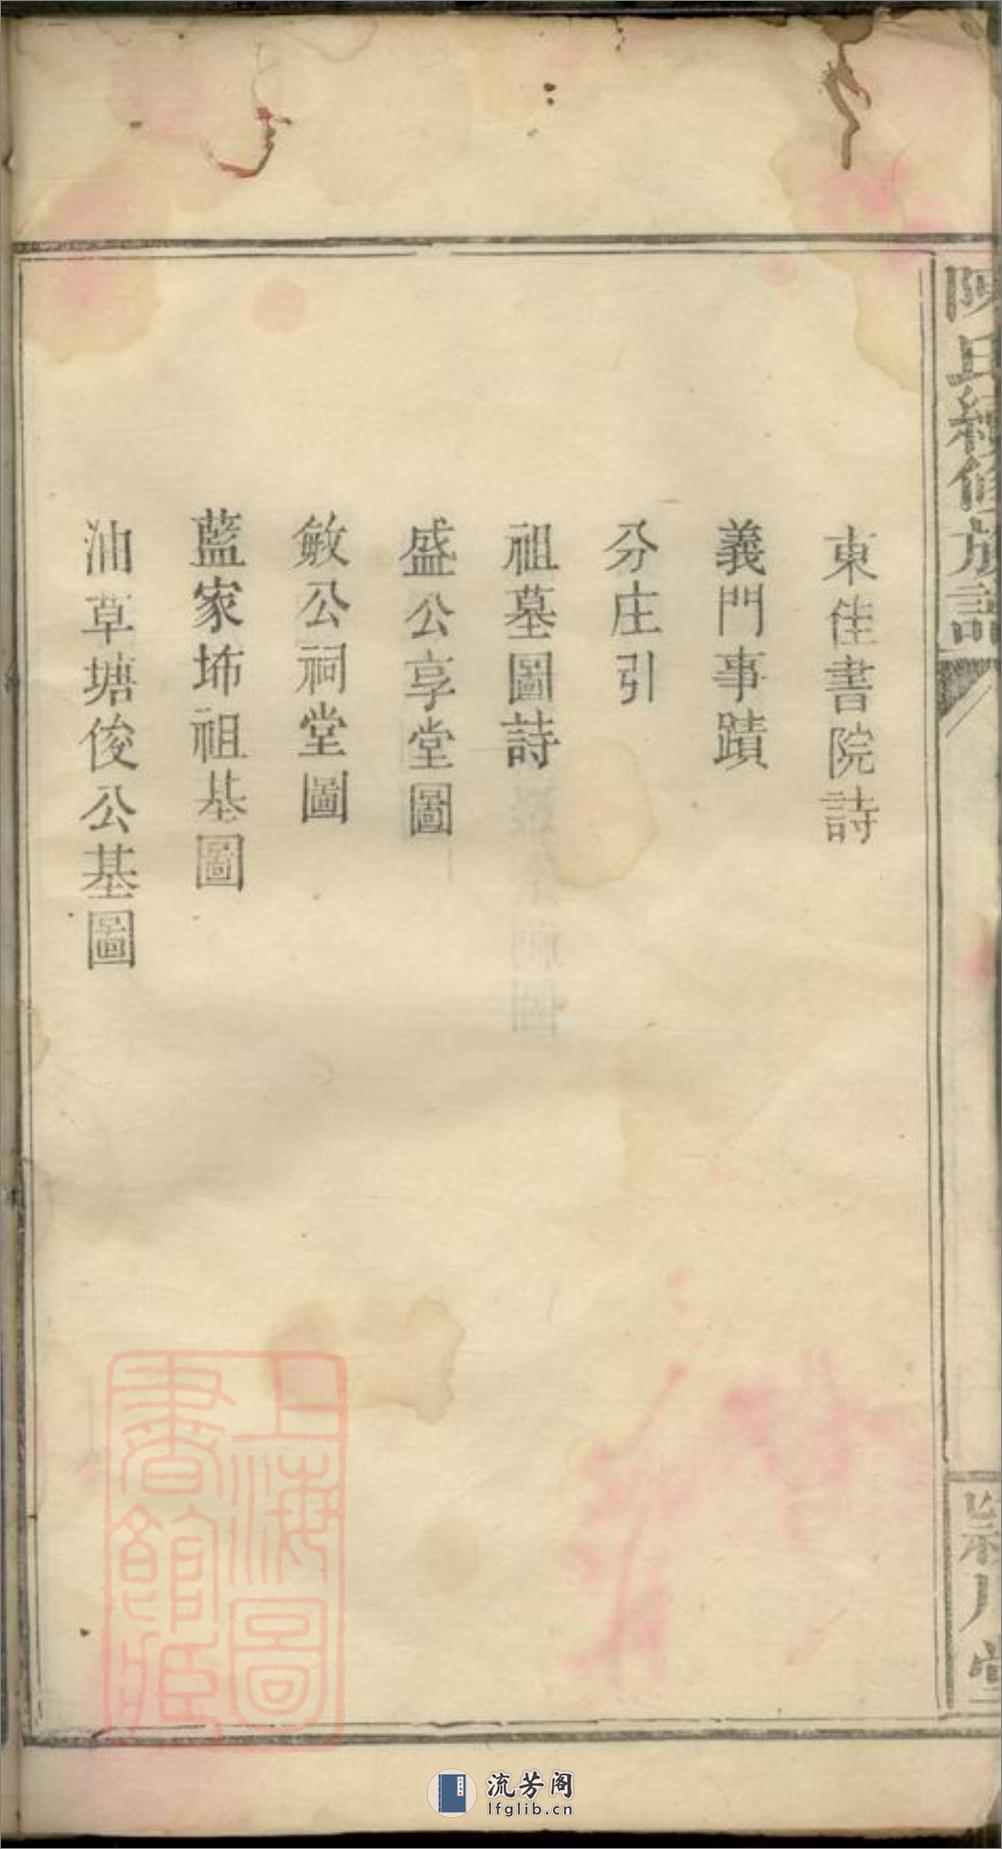 陳氏續修族譜
東佳書院詩
義門事蹟
分庄引
祖墓圖詩
盛公享堂圖
敏公祠堂圖
藍家坳祖基圖
油草塘俊公基圖
潁川堂
上海圖
書館藏
流芳阁
lfglib.cn